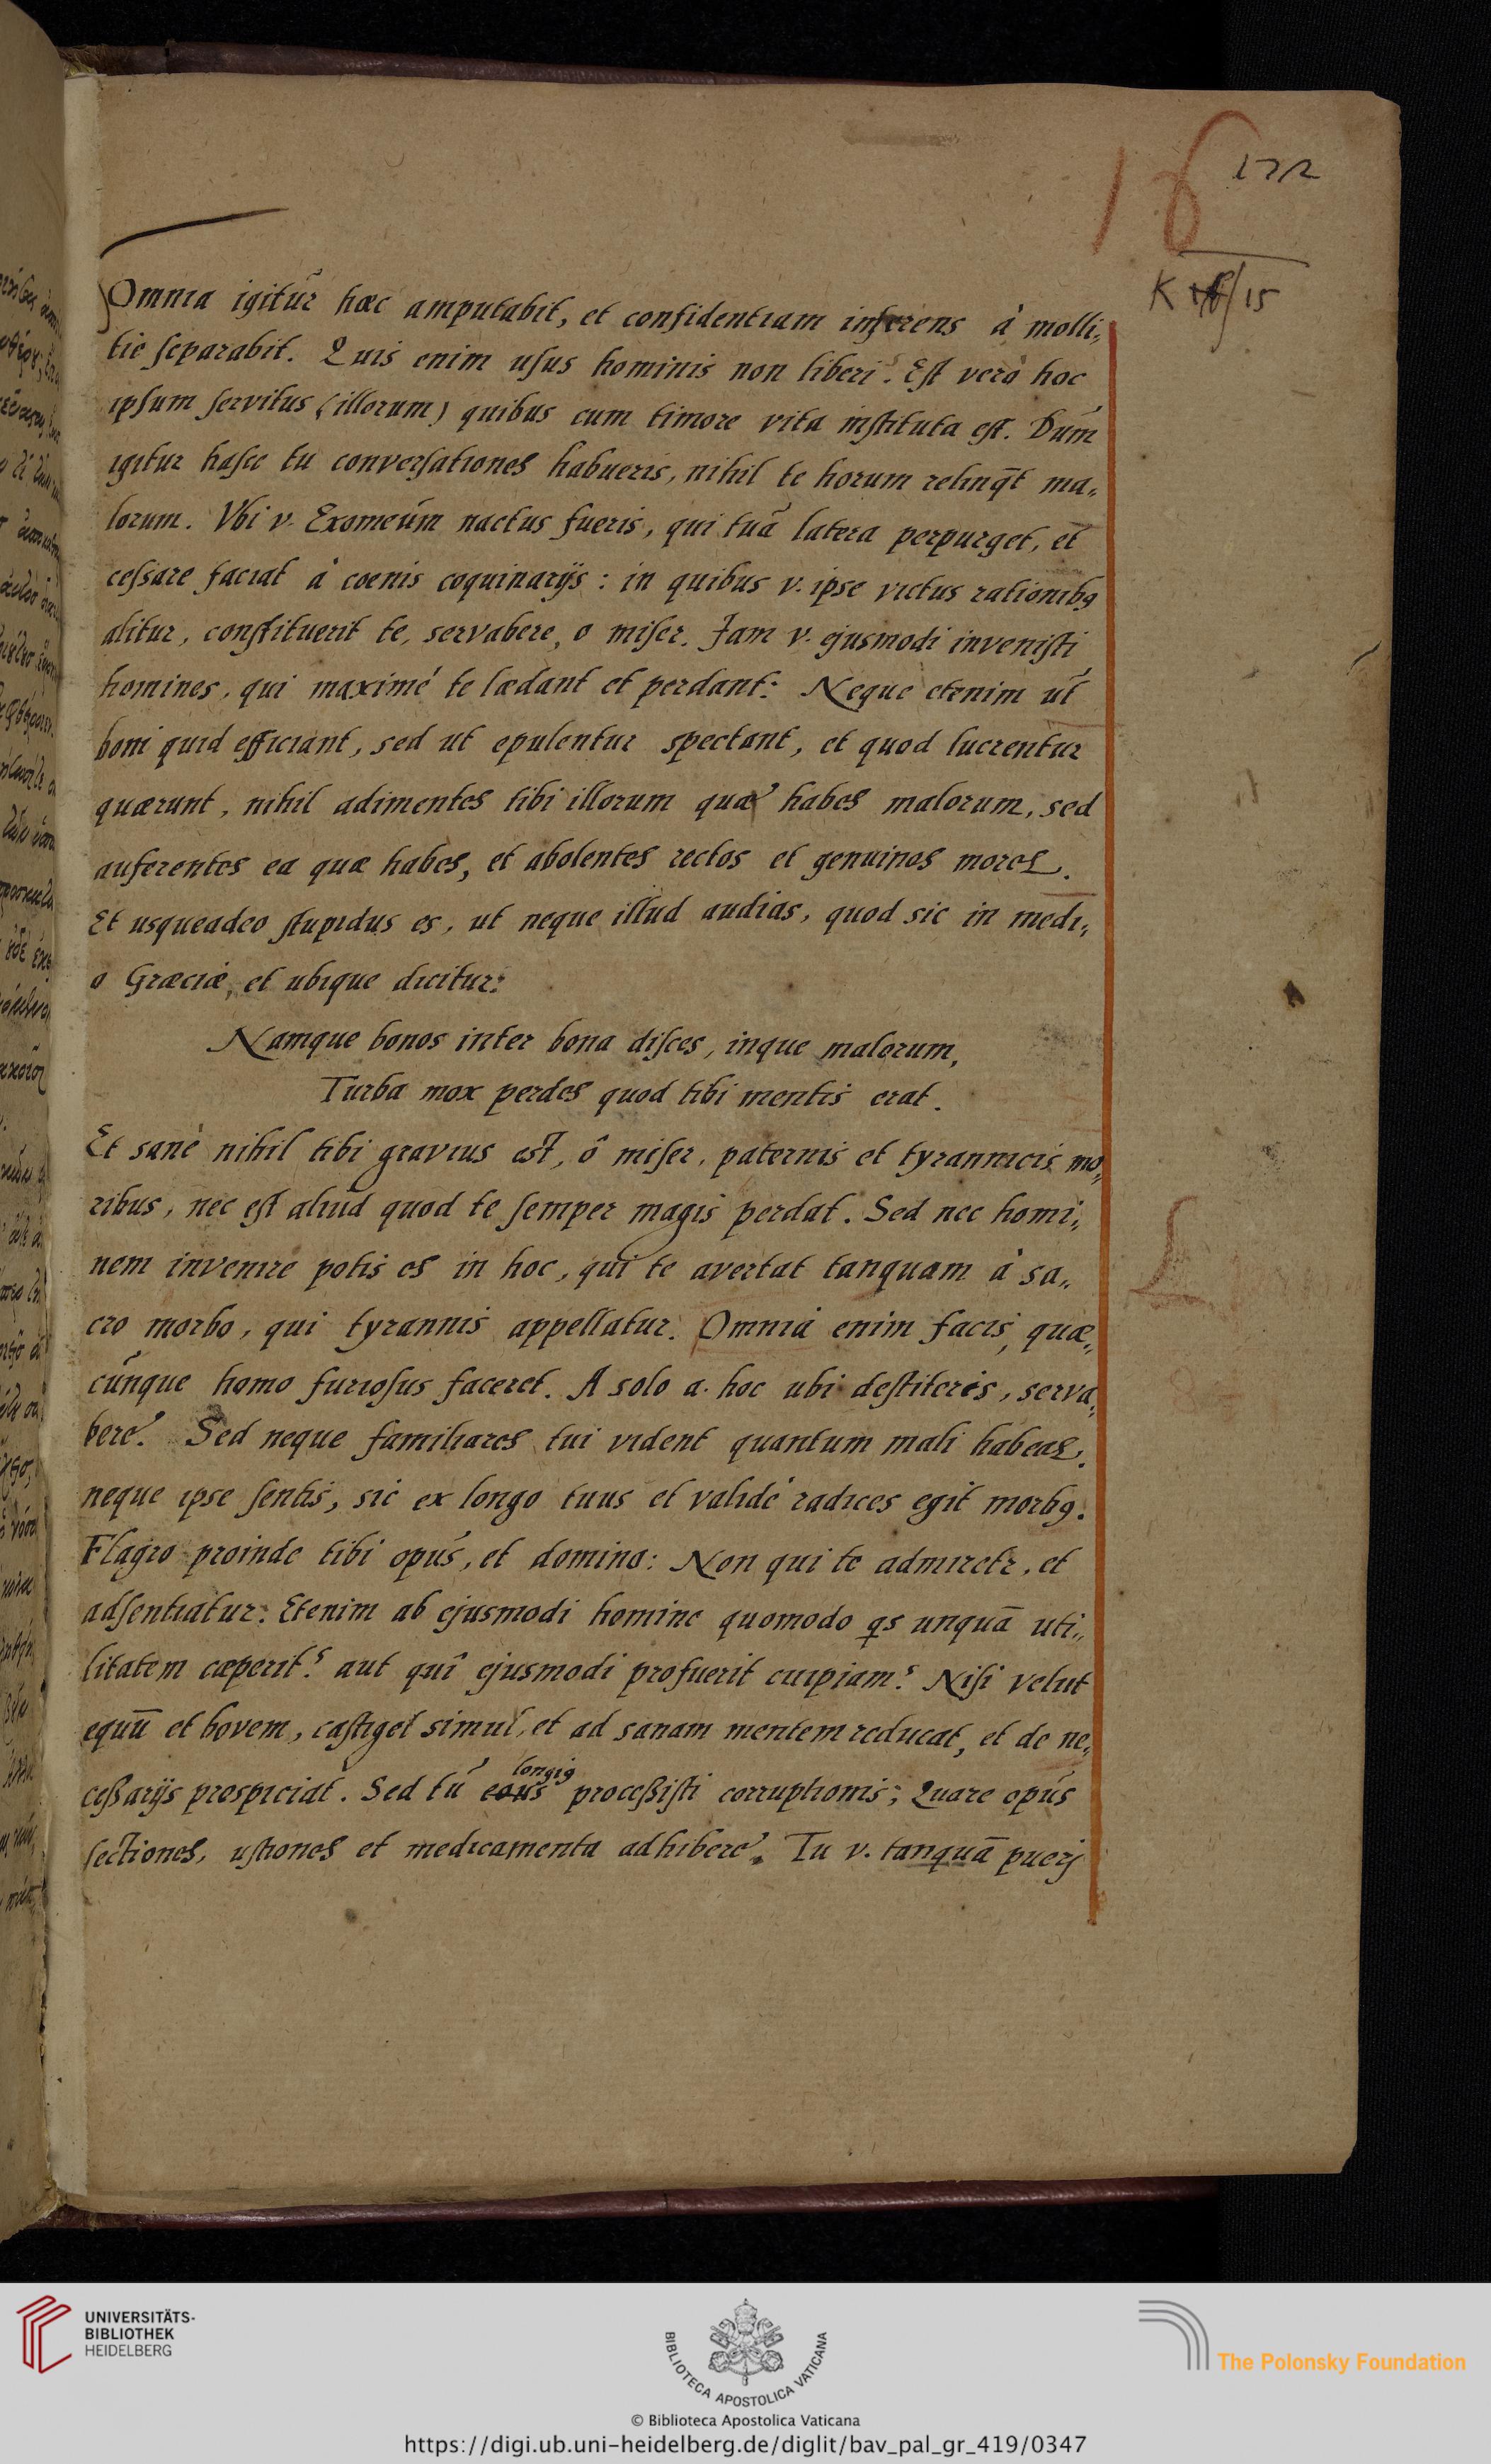 172
16
K 16/15
Omnia igitur hæc amputabit, et confidentiam inserens à molli„
tie separabit. Quis enim usus hominis non liberi. Est verò hoc
ipsum servitus (illorum) quibus cum timore vita instituta est. Dum
igitur hasce tu conversationes habueris, nihil te horum relinq̄t ma„
lorum. Vbi v. Exomeum nactus fueris, qui tuā latera perpurget, et
cessare faciat à coenis coquinarijs: in quibus v. ipse victus rationibꝯ
alitur, constituerit te, servabere, o miser. Jam v. ejusmodi invenisti
homines, qui maximé te lædant et perdant: Neque etenim ut
boni quid efficiant, sed ut epulentur spectant, et quod lucrentur
quærunt, nihil adimentes tibi illorum quæ habes malorum, sed
auferentes ea quæ habes, et abolentes rectos et genuinos mores.
Et usqueadeo stupidus es, ut neque illud audias, quod sic in medi„
o Græciæ, et ubique dicitur:
Namque bonos inter bona disces, inque malorum,
Turba mox perdes quod tibi mentis erat.
Et sanè nihil tibi gravius est, ô miser, paternis et tyrannicis mo„
ribus, nec est aliud quod te semper magis perdat. Sed nec homi„
nem invenire potis es in hoc, qui te avertat tanquam à sa„
cro morbo, qui tyrannis appellatur. Omnia enim facis, quæ„
cunque homo furiosus faceret. A solo a. hoc ubi destiteris, serva„
bere. Sed neque familiares tui vident quantum mali habeas,
neque ipse sentis, sic ex longo tuus et validè radices egit morbꝯ.
Flagro proinde tibi opus, et domino: Non qui te admiretr, et
adsentiatur. Etenim ab ejusmodi homine quomodo qs unquā uti„
litatem cæperit? aut quî ejusmodi profuerit cuipiam? Nisi velut
equū et bovem, castiget simul, et ad sanam mentem reducat, et de ne„
longiꝯ
ceßarijs prospiciat. Sed tu eous proceßisti corruptionis; Quare opus
sectiones, ustiones et medicamenta adhibere. Tu v. tanquā puerj
UNIVERSITÄTS-
BIBLIOTHEK
HEIDELBERG
BIBLIOTECA APOSTOLICA VATICANA
The Polonsky Foundation
© Biblioteca Apostolica Vaticana
https://digi.ub.uni-heidelberg.de/diglit/bav_pal_gr_419/0347